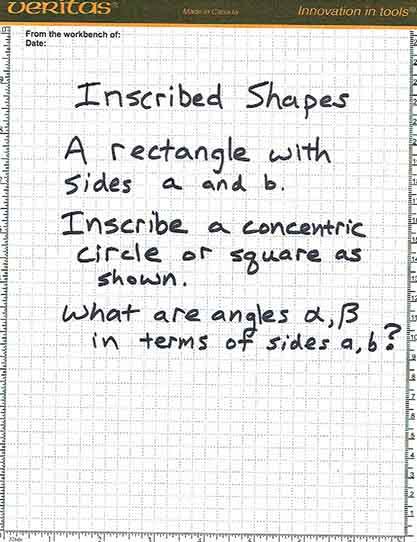 veritas®
Made in Canada
Innovation in tools®
From the workbench of:
Date:
Inscribed Shapes
A rectangle with
sides a and b.
Inscribe a concentric
circle or square as
shown.
What are angles α, β
in terms of sides a, b?